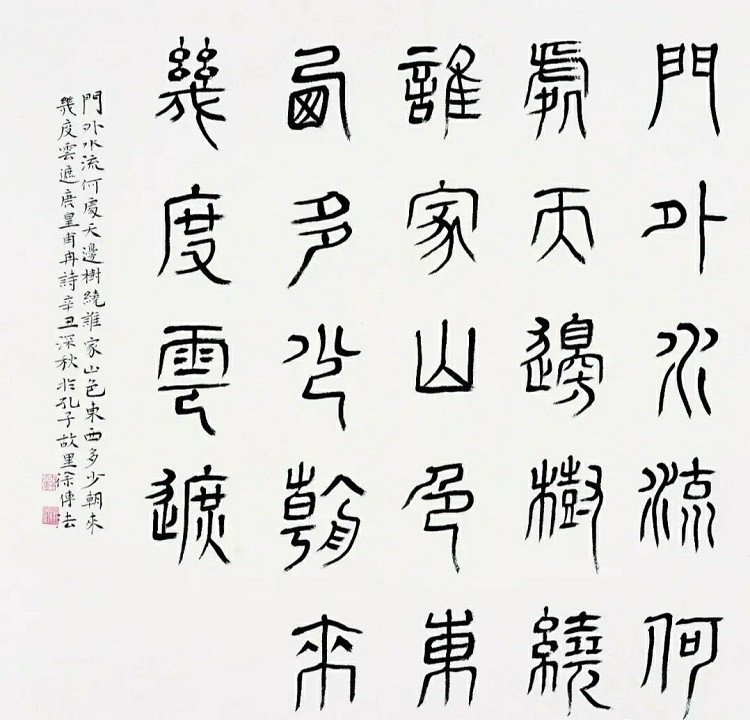 門外水流何
處天邊樹繞
誰家山色東
西多少朝來
幾度雲遮
門外水流何處天邊樹繞誰家山色東西多少朝來
幾度雲遮唐皇甫冉詩辛丑深秋於孔子故里